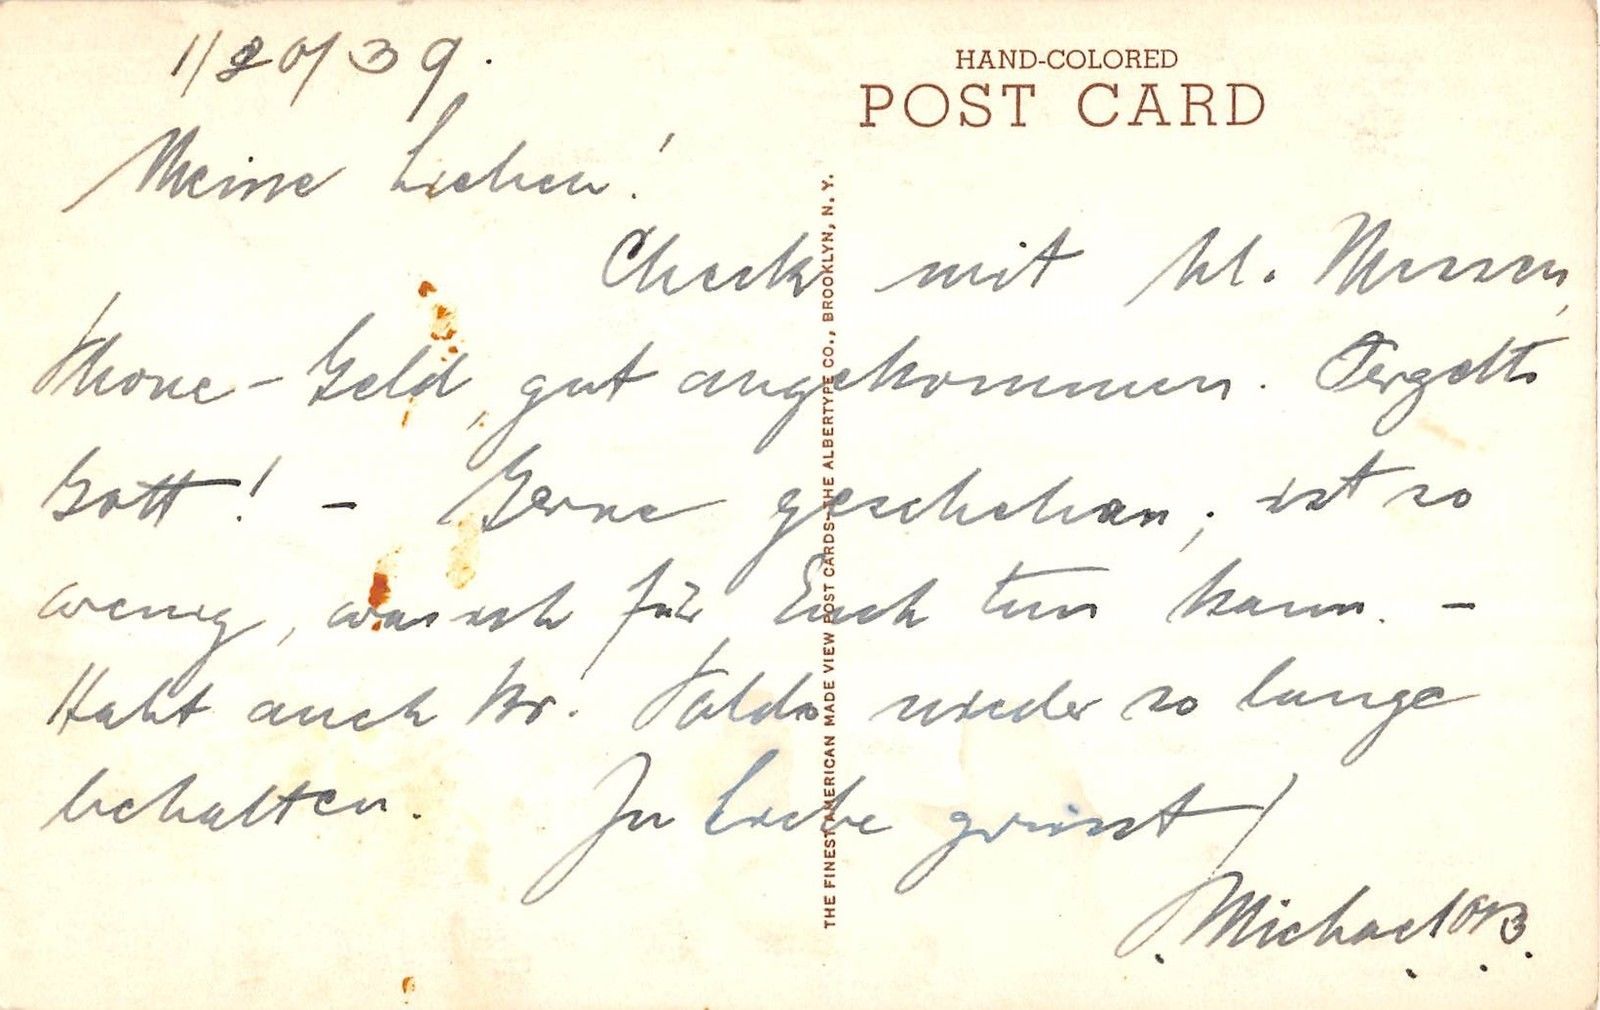 1/20/39.
HAND-COLORED
POST CARD
Meine Lieben!
Check mit hl. Messen,
Phone-Geld, gut angekommen. Vergelts
Gott! - Gerne geschehen, ist so
wenig, was ich für Euch tun kann. -
Habt auch Br. wieder so lange
behalten. In Liebe grüsst
Michael OSB.
THE FINEST AMERICAN MADE VIEW POST CARDS-THE ALBERTYPE CO., BROOKLYN, N.Y.